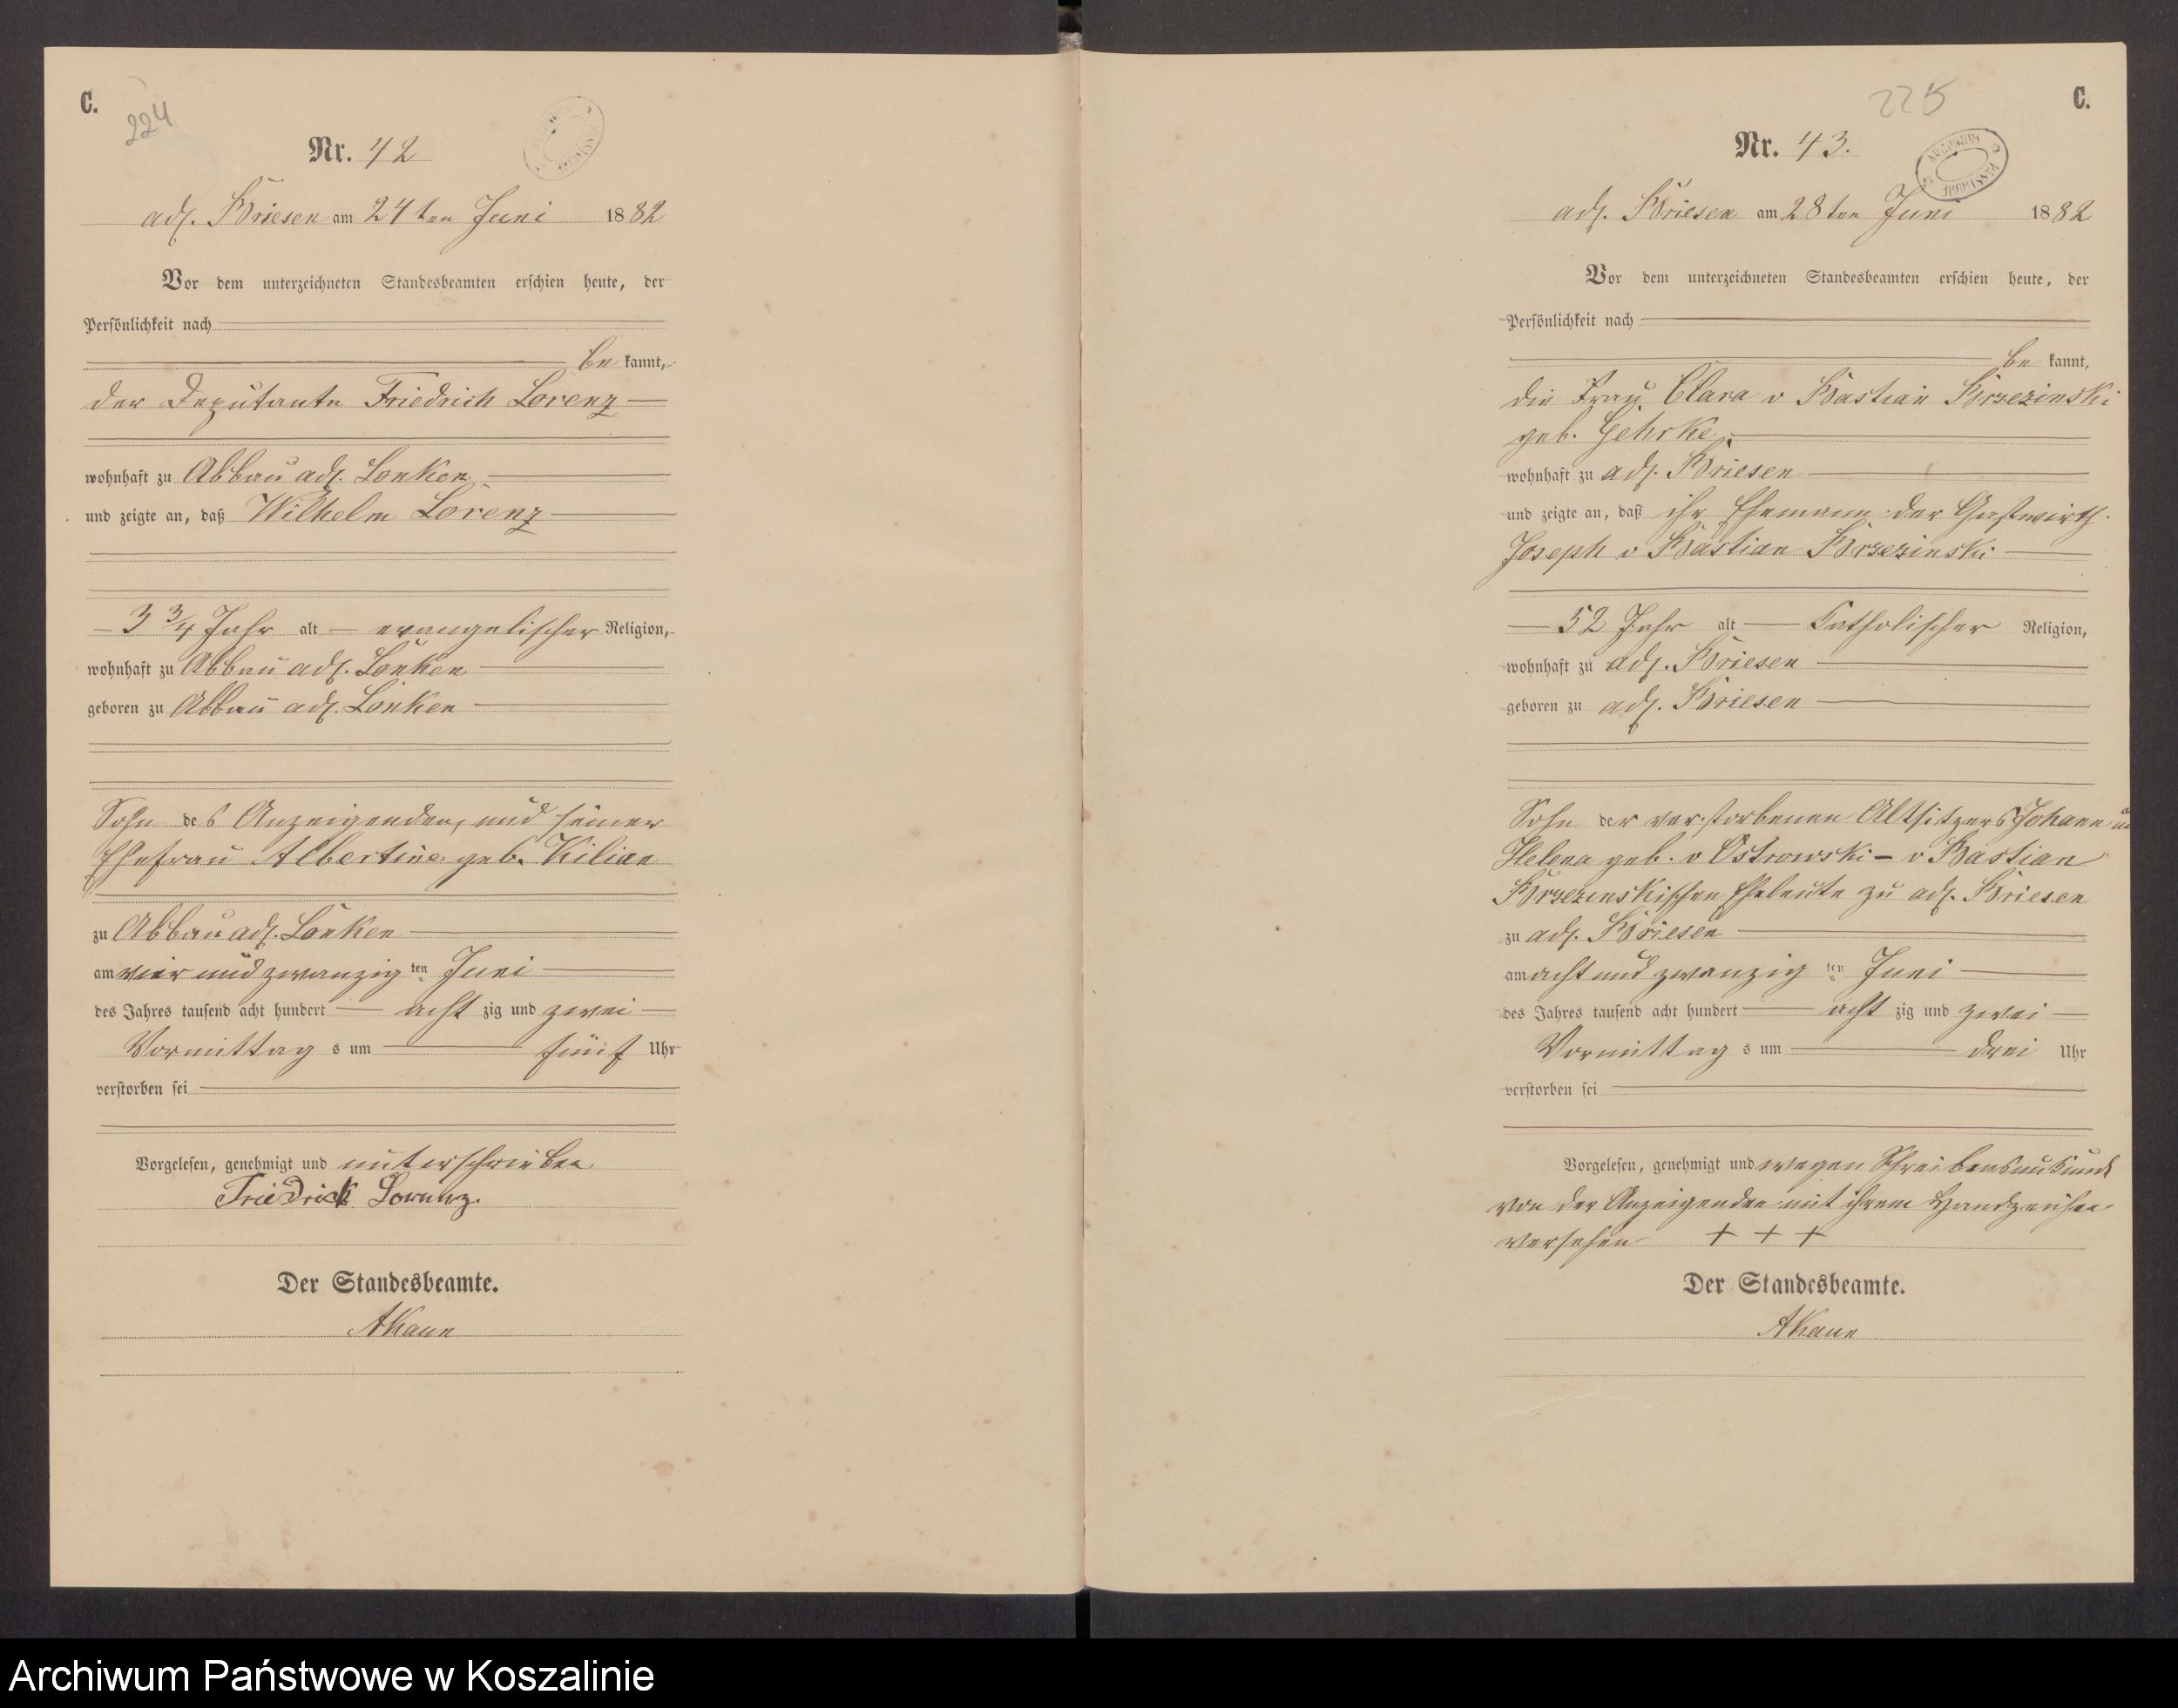 C.
224
Nr. 42
adl. Briesen am 24ten Juni 1882
Vor dem unterzeichneten Standesbeamten erschien heute, der
Persönlichkeit nach
be kannt,
der Deputante Friedrich Lorenz
wohnhaft zu Abbau adl. Lonken
und zeigte an, daß Wilhelm Lorenz
3 3/4 Jahr alt evangelischer Religion,
wohnhaft zu Abbau adl. Lonken
geboren zu Abbau adl. Lonken
Sohn des Anzeigenden, und seiner
Ehefrau Albertine geb. Kilian
zu Abbau adl. Lonken
am vier und zwanzig ten Juni
des Jahres tausend acht hundert acht zig und zwei
Vormittag s um fünf Uhr
verstorben sei
Vorgelesen, genehmigt und unterschrieben
Friedrich Lorenz.
Der Standesbeamte.
AKaun
225
C.
Nr. 43.
adl. Briesen am 28ten Juni 1882
Vor dem unterzeichneten Standesbeamten erschien heute, der
Persönlichkeit nach
be kannt,
die Frau Clara v Bastian Brzezinski
geb. Gehrke,
wohnhaft zu adl. Briesen
und zeigte an, daß ihr Ehemann der Gastwirth
Joseph v Bastian Brzezinski
52 Jahr alt Catholischer Religion,
wohnhaft zu adl. Briesen
geboren zu adl. Briesen
Sohn der verstorbenen Altsitzers Johann und
Helena geb. v Ostrowski - v Bastian
Brzezinskischen Eheleute zu adl. Briesen
zu adl. Briesen
am acht und zwanzig ten Juni
des Jahres tausend acht hundert acht zig und zwei
Vormittag s um drei Uhr
verstorben sei
Vorgelesen, genehmigt und wegen Schreibensunkunde
von der Anzeigenden mit ihrem Handzeichen
versehen + + +
Der Standesbeamte.
AKaun
Archiwum Państwowe w Koszalinie